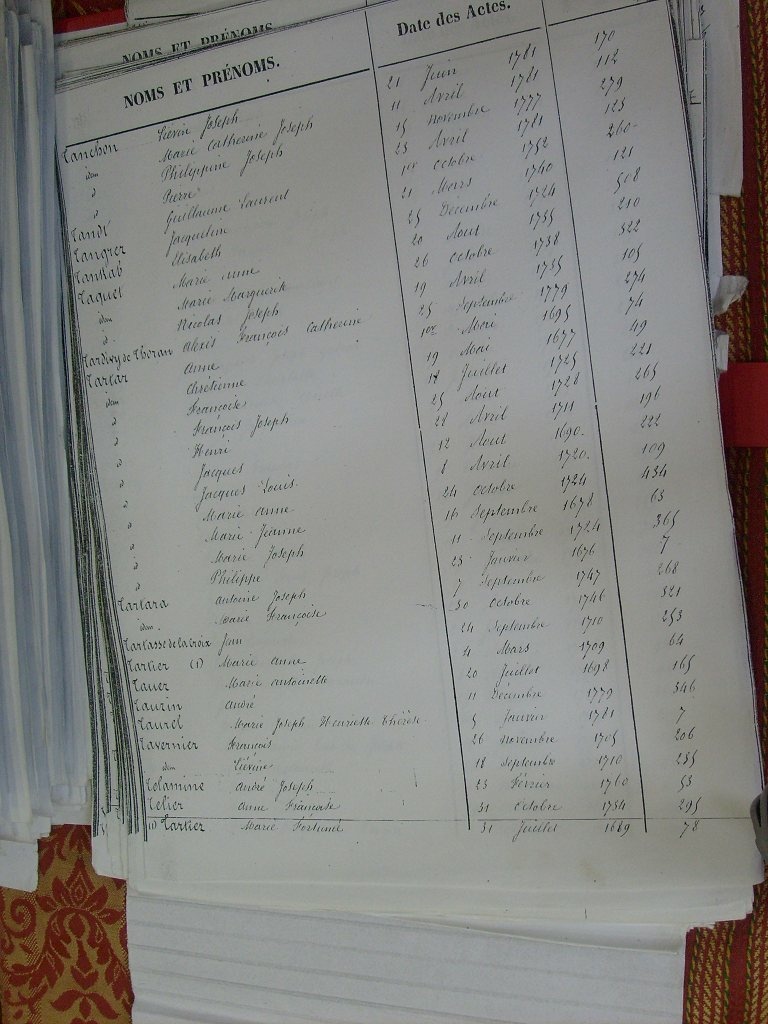 NOMS ET PRÉNOMS.
NOMS ET PRÉNOMS. Date des Actes.
Tanchon Liévin Joseph 21 Juin 1781 170
idem Marie Catherine Joseph 11 Avril 1781 112
d Philippine Joseph 15 novembre 1777 279
d Pierre 23 Avril 1781 123
Tandt Guillaume Laurent 1er octobre 1752 260
Tangrez Jacqueline 21 Mars 1740 121
Tankab Elisabeth 25 Décembre 1724 508
Taquet Marie Anne 20 Aout 1735 210
idem Marie Marguerite 26 octobre 1738 322
d. Nicolas Joseph 19 Avril 1735 105
Tardivy de Thoran Alexis François Catherine 25 Septembre 1779 274
Tartar Anne 1er Mai 1695 74
idem Chrétienne 19 Mai 1677 49
d Françoise 18 Juillet 1725 221
d François Joseph 25 Aout 1728 265
d Henri 22 Avril 1711 196
d Jacques 12 Aout 1690. 222
d Jacques Louis. 1 Avril 1720. 109
d Marie Anne 24 octobre 1724 434
d Marie Jeanne 16 Septembre 1678 63
d Marie Joseph 11 Septembre 1724 365
d Philippe 23 Janvier 1676 7
Tartara Antoine Joseph 7 Septembre 1747 268
idem. Marie Françoise 30 Octobre 1746 321
Tartasse de la croix Jean 24 Septembre 1710 253
Tartier (1) Marie Anne 4 Mars 1709 64
Tauer Marie Antoinette 20 Juillet 1698 165
Tauzin André 11 Décembre 1779 346
Taurel Marie Joseph Henriette Thérèse 5 Janvier 1781 7
Tavernier François 26 Novembre 1705 206
idem Liévine 18 Septembre 1710 235
André Joseph 23 Février 1760 53
Telier Anne Françoise 31 Octobre 1734 295
(1) Tartier Marie Fortuné 31 Juillet 1689 78